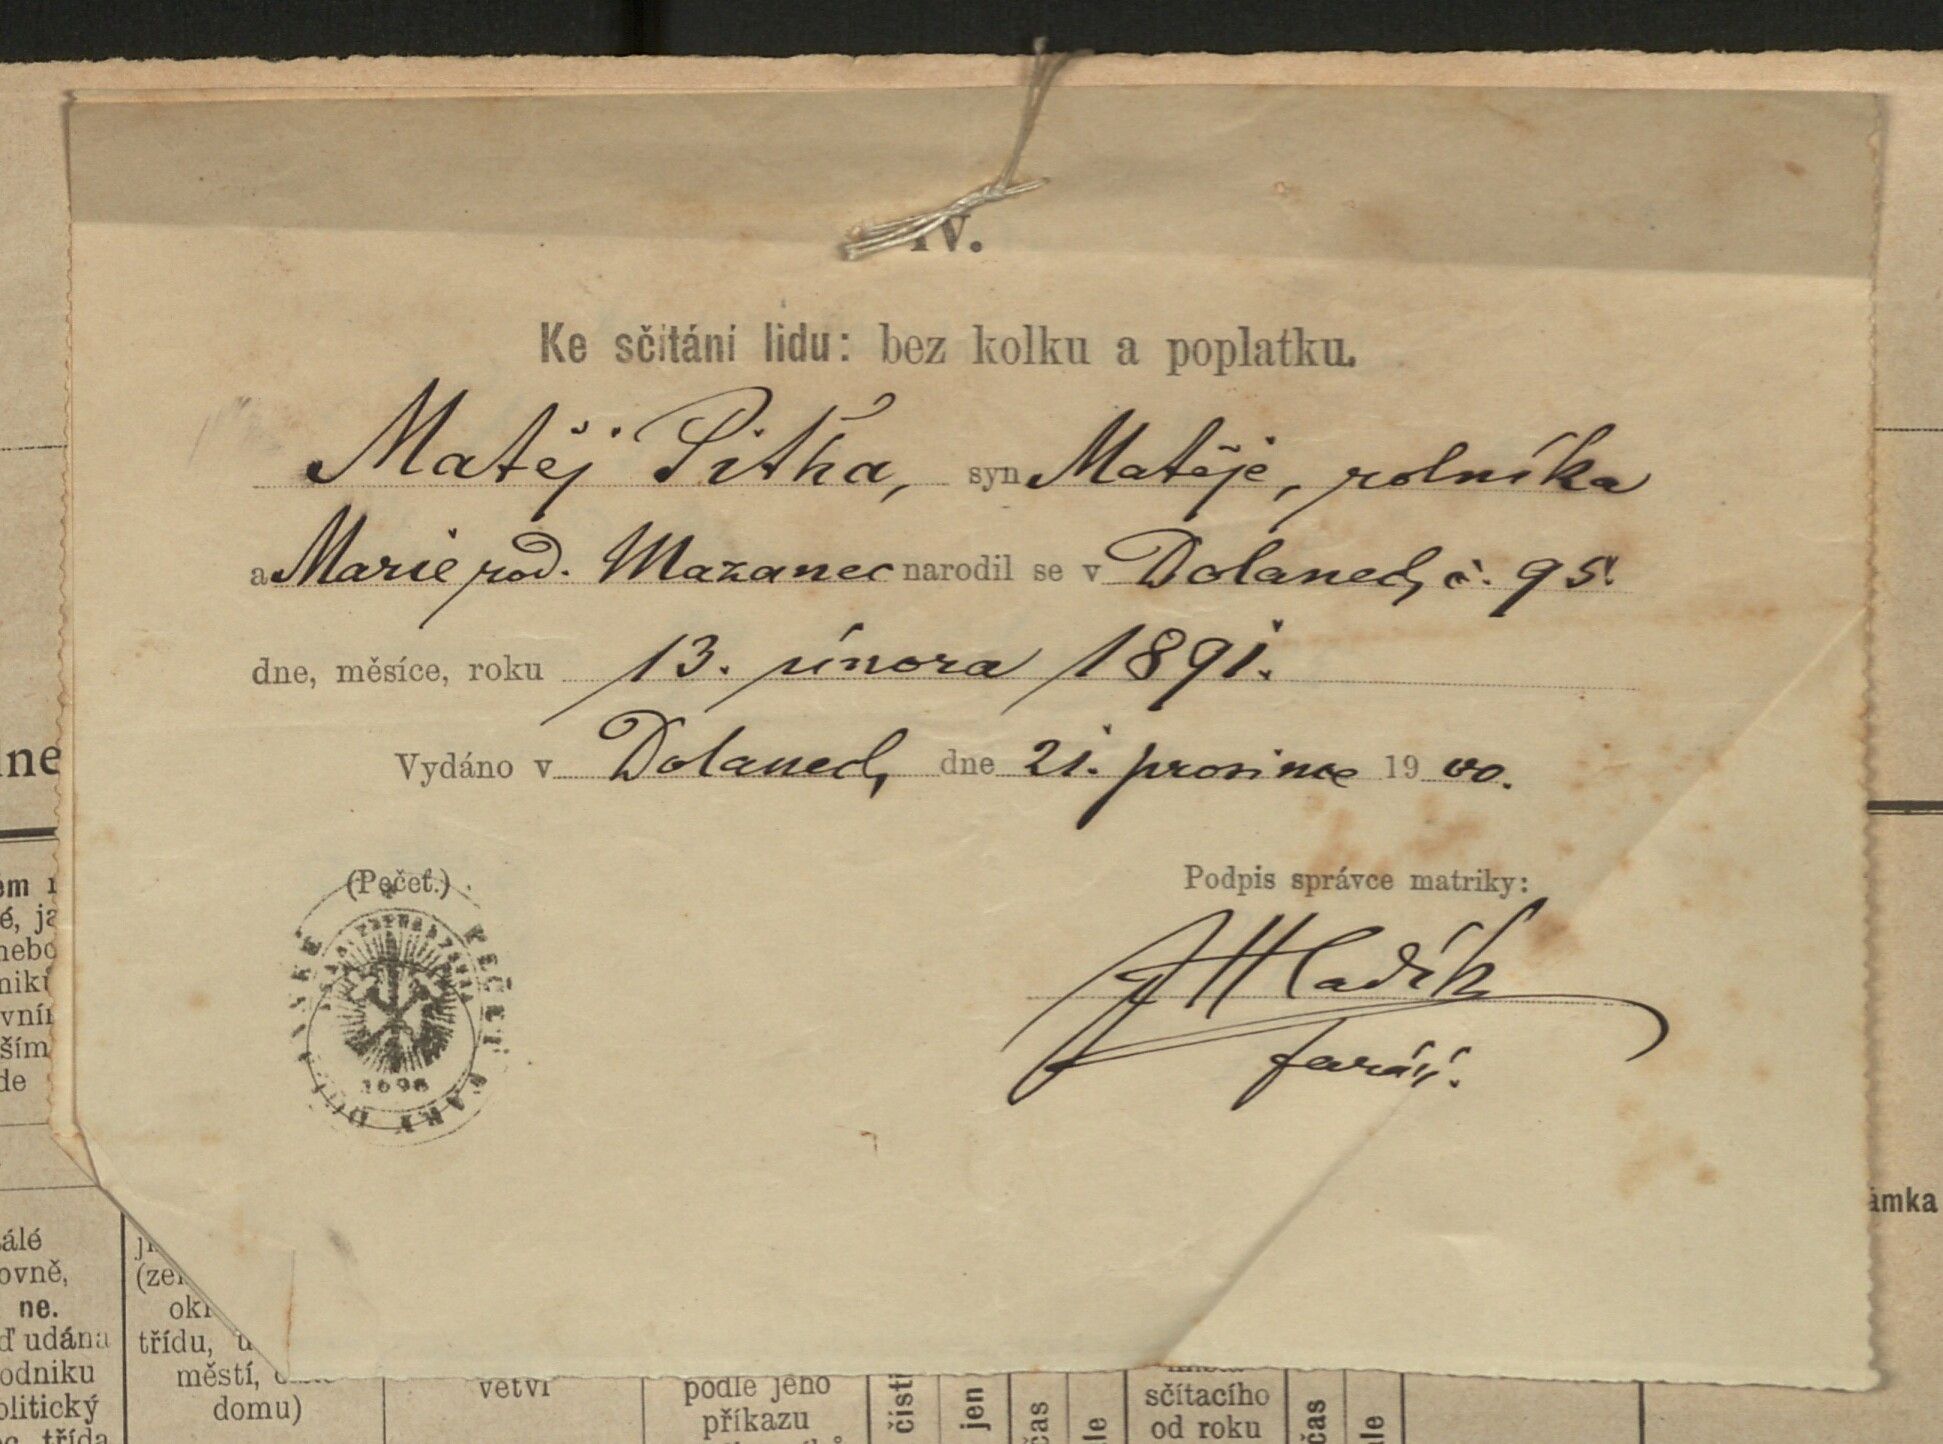 IV.
Ke sčítání lidu: bez kolku a poplatku.
Matěj Pitha, syn Matěje, rolníka
a Marie rod. Mazanec narodil se v Dolanech č. 95.
dne, měsíce, roku 13. února 1891.
Vydáno v Dolanech, dne 21. prosince 1900.
(Pečeť.)
Podpis správce matriky:
JHladík
farář.
1698
lne
ámka
álé
ovně,
ne.
ď udána
odniku
olitický
třídu,
městí,
domu)
větví
podle jeho
příkazu
jen
čas
sčítacího
od roku
čas